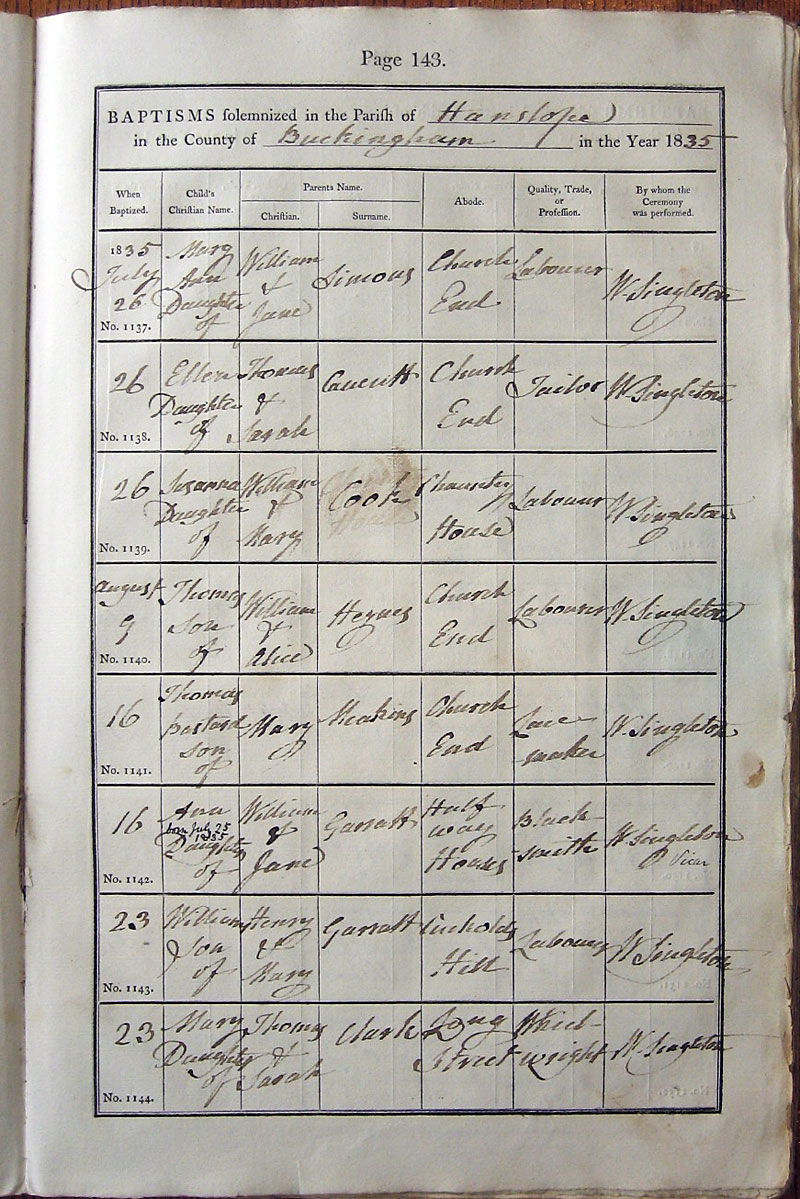 Page 143.
BAPTISMS solemnized in the Parish of Hanslope
in the County of Buckingham in the Year 1835
When Baptized. Child's Christian Name. Parents Name. Christian. Surname. Abode. Quality, Trade, or Profession. By whom the Ceremony was performed.
1835 July 26 No. 1137. Mary Ann Daughter of William & Jane Simons Church End Labourer W Singleton
26 No. 1138. Ellen Daughter of Thomas & Sarah Church End Tailor W Singleton
26 No. 1139. Susanna Daughter of William & Mary Cook House Labourer W Singleton
August 9 No. 1140. Thomas Son of William & Alice Church End Labourer W Singleton
16 No. 1141. Thomas bastard son of Mary Meakins Church End Lace maker W Singleton
16 No. 1142. Ann born July 25 1835 Daughter of William & Jane Garratt Half way Houses Black smith W Singleton Vicar
23 No. 1143. William Son of Henry & Mary Garratt Cuckolds Hill Labourer W Singleton
23 No. 1144. Mary Daughter of Thomas & Sarah Clark Long Street Wheel wright W Singleton